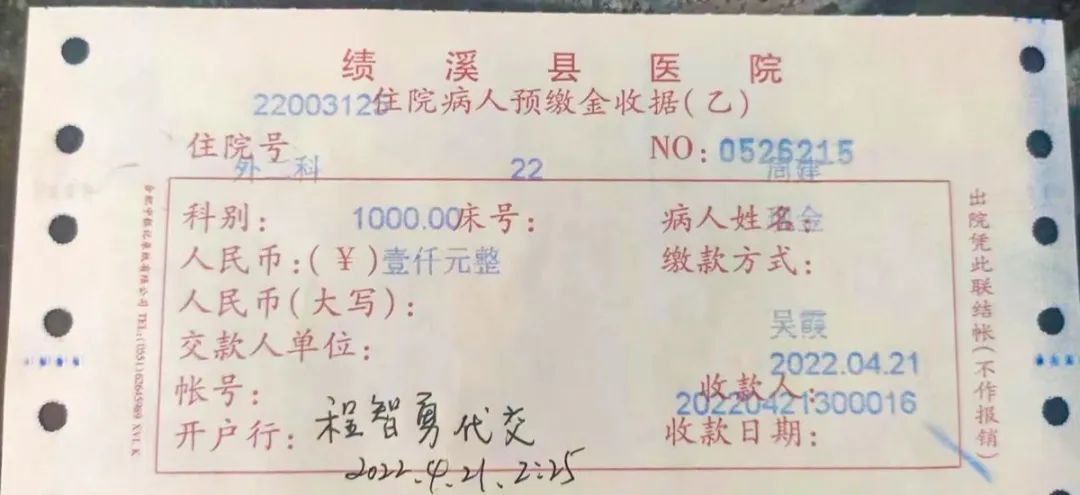 绩溪县医院
22003125住院病人预缴金收据(乙)
住院号 NO:0526215
外二科 22 周建
科别: 1000.00床号: 病人姓名: 现金
人民币:(¥)壹仟元整 缴款方式:
人民币(大写):
交款人单位: 吴霞
2022.04.21
帐号: 收款人:
20220421300016
开户行:程智勇代交 收款日期:
2022.4.21.2:25
出院凭此联结帐(不作报销)
TEL:(0551)62645989 XVLK